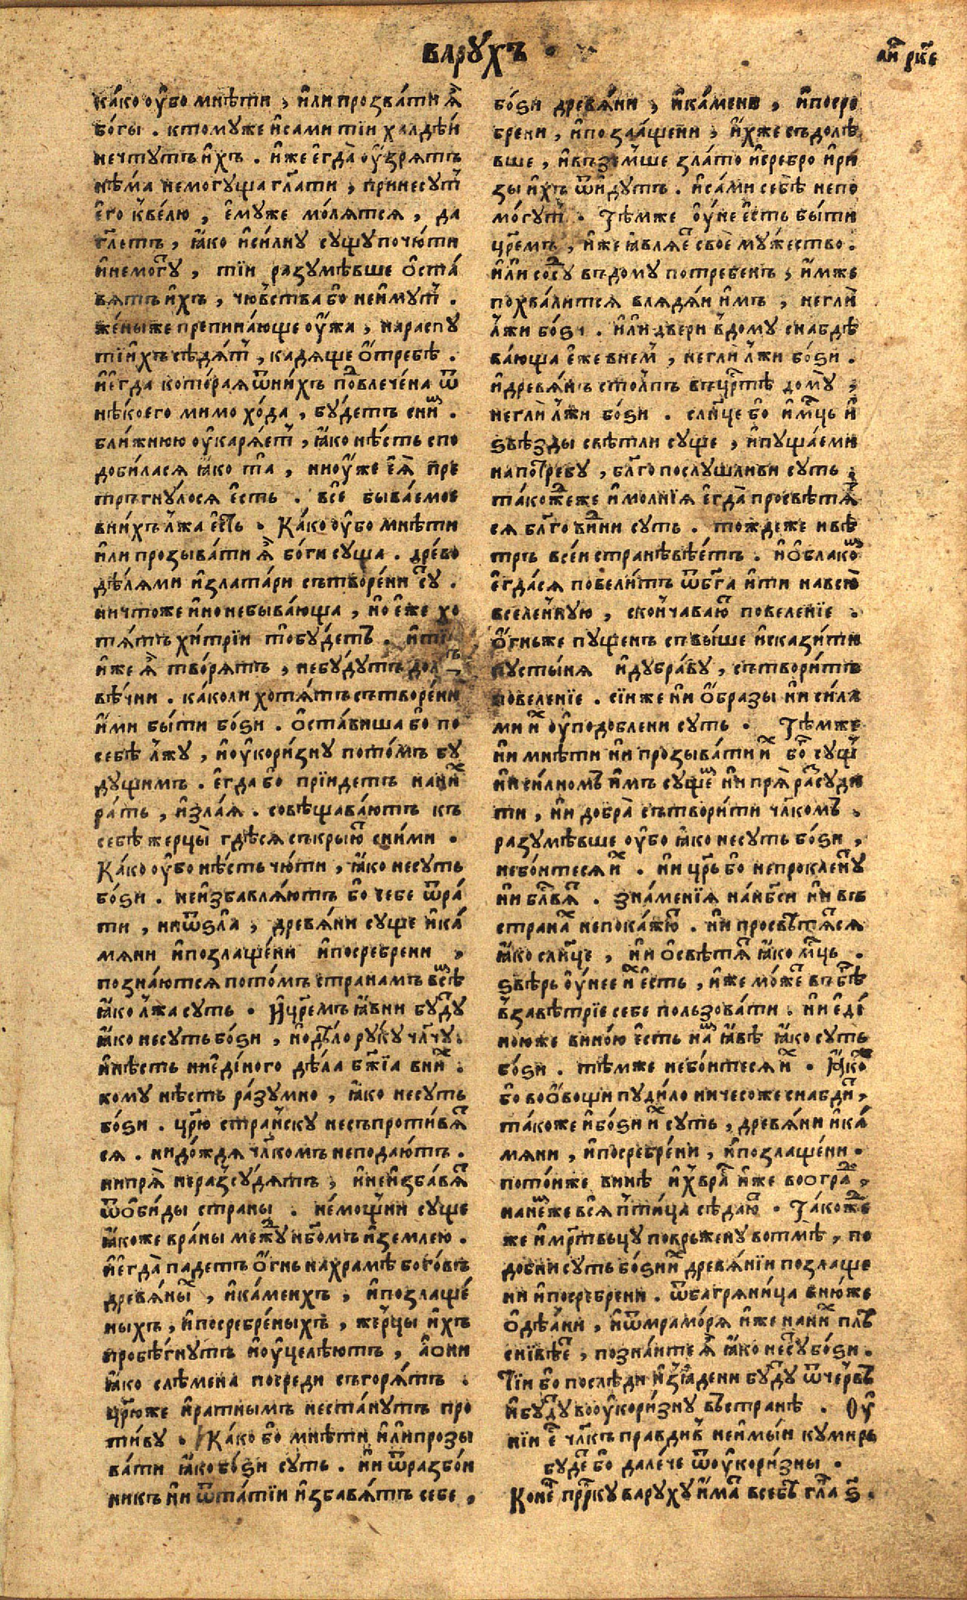 варꙋхъ
како ᲂу҆бо мнѣти , и҆ли прозвати ꙗ҆̀
богы . ктомꙋже и҆сами тїи халдѣи
нечтꙋтъ и҆хъ . и҆же е҆гда ᲂу҆зрѧтъ
нѣма немогꙋща гл҃ати , принесꙋт
е҆го квелю , е҆мꙋже молѧтсѧ , да
гл҃етъ , ꙗ҆ко и҆силнꙋ сꙋщꙋ почюти
и҆немогꙋ , тїи разꙋмѣвше ѻ҆ста
вѧтъ и҆хъ , чювства бо неи҆мꙋт .
женыже препинающе ᲂу҆жа , нараспꙋ
тїи҆хъ сѣдѧт , кадѧще ѻ҆требѣ .
и҆е҆гда котораѧ ѿнихъ повлечена ѿ
нѣкоего мимо хода , бꙋдетъ сним .
ближнюю ᲂу҆карѧет , ꙗ҆ко нѣсть спо
добиласѧ ꙗ҆ко та , ниᲂу҆же е҆ѧ̀ пре
тръгнꙋлосѧ е҆сть . всѐ бываемое
внихъ лжа е҆сть . Како ᲂу҆бо мнѣти
и҆ли прозывати ꙗ҆̀ боги сꙋща . древо
дѣлѧми и҆златари сътворени сꙋ .
ничтоже и҆но небывающа , но е҆же хо
тѧтъ хитрїи тобꙋдетъ . и҆тїи
и҆же ꙗ҆̀ творѧтъ , небꙋдꙋтъ дол
вѣчни . каколи хотѧтъ сътворени
и҆ми быти боѕи . ѻ҆ставиша бо по
себѣ лжꙋ , и҆ᲂу҆коризнꙋ потомъ бꙋ
дꙋщимъ . е҆гда бо прїидетъ наних
рать , и҆злаѧ . совѣщаваютъ къ
себѣ жерцы̀ гдѣсѧ съкрыют сними .
Како ᲂу҆бо нѣсть чюти , ꙗ҆ко несꙋть
боѕи . неи҆збавлѧютъ бо себе ѿра
ти , ниѿѕла , древѧни сꙋще и҆ка
мѧни и҆позлащени и҆посребрени ,
познаютсѧ потомъ странамъ всѣм
ꙗ҆ко лжа сꙋть . И҆цр҃емъ ꙗ҆вни бꙋдꙋ
ꙗ҆ко несꙋть боѕи , нодѣло рꙋкꙋ чл҃чꙋ .
и҆нѣсть ниединого дѣла бж҃їа вних .
комꙋ нѣсть разꙋмно , ꙗ҆ко несꙋть
боѕи . цр҃ю странскꙋ несъпротивѧ
сѧ . ни дождѧ чл҃комъ неподаютъ .
нипрѧ̀ неразсꙋдѧтъ , и҆неи҆збавѧт
ѿѻ҆биды страны . немощни сꙋще
ꙗ҆коже враны межꙋ нб҃омъ и҆землею .
и҆е҆гда̀ падетъ ѻ҆гнь нахрамѣ боговъ
древѧных , и҆каменхъ , и҆позлаще
ныхъ , и҆посребреныхъ , жерцы и҆хъ
пробѣгнꙋтъ и҆ᲂу҆целѣютъ , а҆ѡни
ꙗ҆ко слѣмена посреди съгорѧтъ .
цр҃юже и҆ратнымъ нестанꙋтъ про
тивꙋ . Како бо мнѣти и҆липрозы
вати ꙗ҆ко боѕи сꙋть . ни ѿразбои
никъ ни ѿтатїи и҆збавѧтъ себе ,
боѕи древѧни , и҆камени , и҆посре
брени , и҆позлащени , и҆хже съдолѣ
вше , и҆въземше злато и҆сребро и҆ри
зы и҆хъ ѿидꙋтъ . и҆сами себѣ непо
могꙋт . Тѣмже ᲂу҆не е҆сть быти
цр҃емъ , и҆же ꙗ҆влѧет свое мꙋжество .
и҆ли сосꙋ въдомꙋ потребенъ , и҆мже
похвалитсѧ владѧи и҆мъ , неглѝ
лжи боѕи . и҆ли двери вдомꙋ снабдѣ
вающа е҆же внем , негли лжи боѕи .
и҆древѧнъ столпъ въцр҃стѣ домꙋ ,
негли лжи боѕи . слн҃це бо и҆мц҃ь и҆
ѕвѣзды свѣтли сꙋще , и҆пꙋщаеми
напотребꙋ , бл҃гопослꙋшливи сꙋть ,
такожеже и҆молнїѧ е҆гда просвѣтѧ
сѧ бл҃говинни сꙋть . тождеже ивѣ
тръ всеи странѣвѣетъ . и҆ѻ҆блаком
е҆гдасѧ повелитъ ѿбг҃а ити навсю
вселенꙋю , скончавают повеленїе .
ѻ҆гньже пꙋщенъ свыше исказити
пꙋстынѧ и҆дꙋбравꙋ , сътворитъ
повеленїе . сїиже ни ѻ҆бразы ни сила
ми и҆х ᲂу҆подоблени сꙋть . Тѣмже
ни мнѣти ни прозывати и҆х бог сꙋщ
ни силном и҆мъ сꙋщем ни прѧ̀ расꙋди
ти , ни добра̀ сътворити чл҃комъ .
разꙋмѣвше ᲂу҆бо ꙗ҆ко несꙋть боѕи ,
небоитесѧ и҆х . ни цр҃ь бо непрокленꙋ
ни блв҃ѧт . знаменїѧ нанбс҃и ни въ
странах непокажꙋт . ни просвѣтѧтсѧ
ꙗ҆ко слн҃це , ни ѻ҆свѣтѧт ꙗ҆ко мц҃ь .
ѕвѣрь ᲂу҆нее и҆х е҆сть , и҆же может въбѣ
взавѣтрїе себе пользовати . ни еди
ноюже виною е҆сть нам ꙗ҆вѣ ꙗ҆ко сꙋть
боѕи . тѣмже небоитесѧ и҆х . Ꙗ҆кож
бо воѻ҆вощи пꙋдило ничесоже снабди ,
такоже и҆боѕи и҆х сꙋть , древѧни и҆ка
мѧни , и҆посребрени , и҆позлащени .
потоиже винѣ и҆хвраг и҆же вооград ,
нанемже всѧ птица сѣдают . Такоже
же и҆мр҃твьцꙋ поврьженꙋ вотмѣ , по
добни сꙋть боѕии҆х древѧнїи позлаще
ни и҆посребрени . ѿбагрѧница внюже
ѻ҆дѣани , и҆ѿмраморѧ и҆же наних плѣ
снївѣет , познаите ꙗ҆̀ ꙗ҆ко несꙋ боѕи .
Тїи бо послѣди и҆зꙗдени бꙋдꙋ ѿчервъ
и҆бꙋдꙋ воᲂу҆коризнꙋ въстранѣ . Ѹ
нїи е҆ чл҃къ праведив неимыи кꙋмиръ
бꙋдет бо далече ѿᲂу҆коризны .
Конец прⷪркꙋ варꙋхꙋ и҆мат всебѣ глав ѕ҃ .